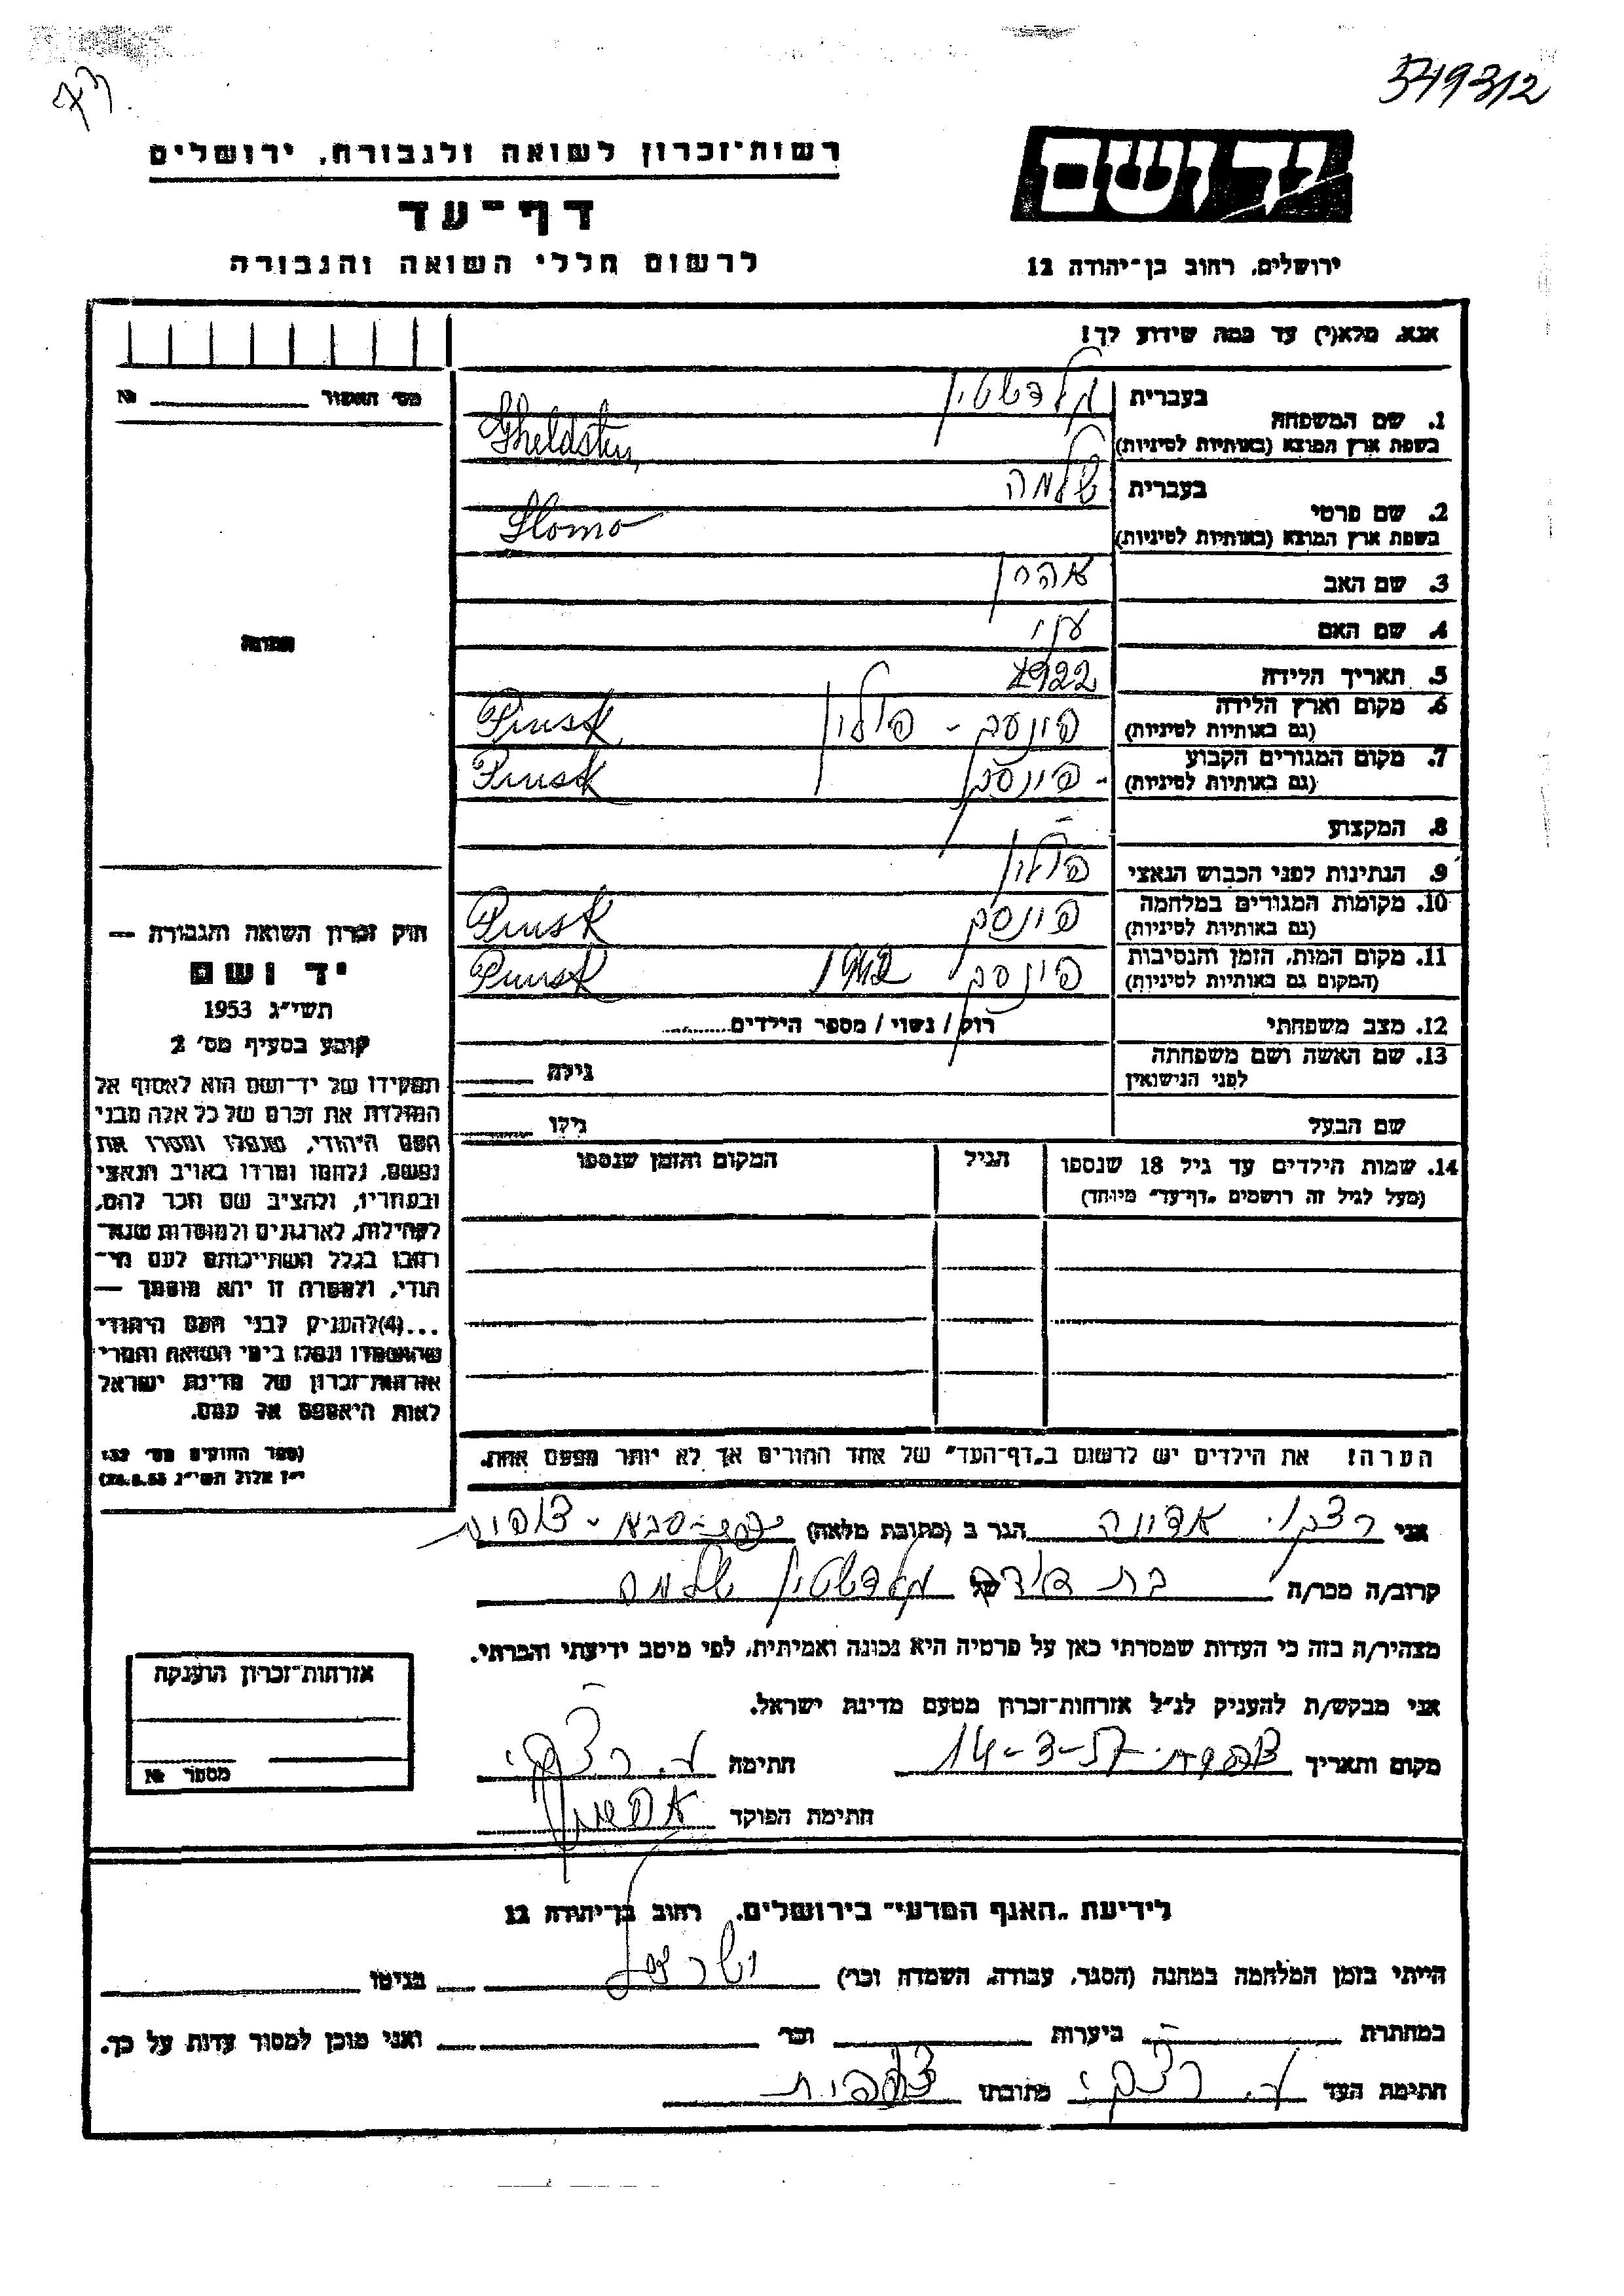 549312
רשות־זכרון לשואה ולגבורה, ירושלים
יד ושם
דף־עד
לרשום חללי השואה והגבורה
ירושלים, רחוב בן־יהודה 12
אנא, מלא(י) עד כמה שידוע לך!
מס' האשור № 
1. שם המשפחה בעברית גולדשטיין
בשפת ארץ המוצא (באותיות לטיניות) Gheldstein
2. שם פרטי בעברית שלמה
בשפת ארץ המוצא (באותיות לטיניות) Slomo
3. שם האב אהרן
4. שם האם
5. תאריך הלידה 1922
6. מקום וארץ הלידה פינסק - פולין Pinsk
(גם באותיות לטיניות)
7. מקום המגורים הקבוע פינסק Pinsk
(גם באותיות לטיניות)
8. המקצוע -
9. הנתינות לפני הכבוש הנאצי פולין
10. מקומות המגורים במלחמה פינסק Pinsk
(גם באותיות לטיניות)
11. מקום המות, הזמן והנסיבות פינסק 1942 Pinsk
(המקום גם באותיות לטיניות)
12. מצב משפחתי רווק / נשוי / מספר הילדים
13. שם האשה ושם משפחתה גילה
לפני הנישואין
שם הבעל גילו
14. שמות הילדים עד גיל 18 שנספו הגיל המקום והזמן שנספו
(מעל לגיל זה רושמים "דף־עד" מיוחד)
הערה! את הילדים יש לרשום ב"דף־העד" של אחד ההורים אך לא יותר מפעם אחת.
תמונה
חוק זכרון השואה והגבורה —
יד ושם
תשי"ג 1953
קובע בסעיף מס' 2
תפקידו של יד־ושם הוא לאסוף אל
המולדת את זכרם של כל אלה מבני
העם היהודי, שנפלו ומסרו את
נפשם, נלחמו ומרדו באויב הנאצי
ובעוזריו, ולהציב שם וזכר להם,
לקהילות, לארגונים ולמוסדות שנח־
רבו בגלל השתייכותם לעם הי־
הודי, ולמטרה זו יהא מוסמך —
...(4) להעניק לבני העם היהודי
שהושמדו ונפלו בימי השואה והמרי
אזרחות־זכרון של מדינת ישראל
לאות היאספם אל עמם.
(ספר החוקים מס' 132
י"ז אלול תשי"ג 28.8.53)
אני הגר ב (כתובת מלאה) כפר-סבא
קרוב/ה מכר/ה בת דודה של גולדשטיין שלמה
מצהיר/ה בזה כי העדות שמסרתי כאן על פרטיה היא נכונה ואמיתית, לפי מיטב ידיעתי והכרתי.
אני מבקש/ת להעניק לנ"ל אזרחות־זכרון מטעם מדינת ישראל.
מקום ותאריך 14-3-57 חתימה
חתימת הפוקד
אזרחות־זכרון הוענקה
מספר №
לידיעת "האגף המדעי" בירושלים, רחוב בן־יהודה 12
הייתי בזמן המלחמה במחנה (הסגר, עבודה, השמדה וכו') ישראל בגיטו
במחתרת - ביערות וכו' ואני מוכן למסור עדות על כך.
חתימת העד כתובתו